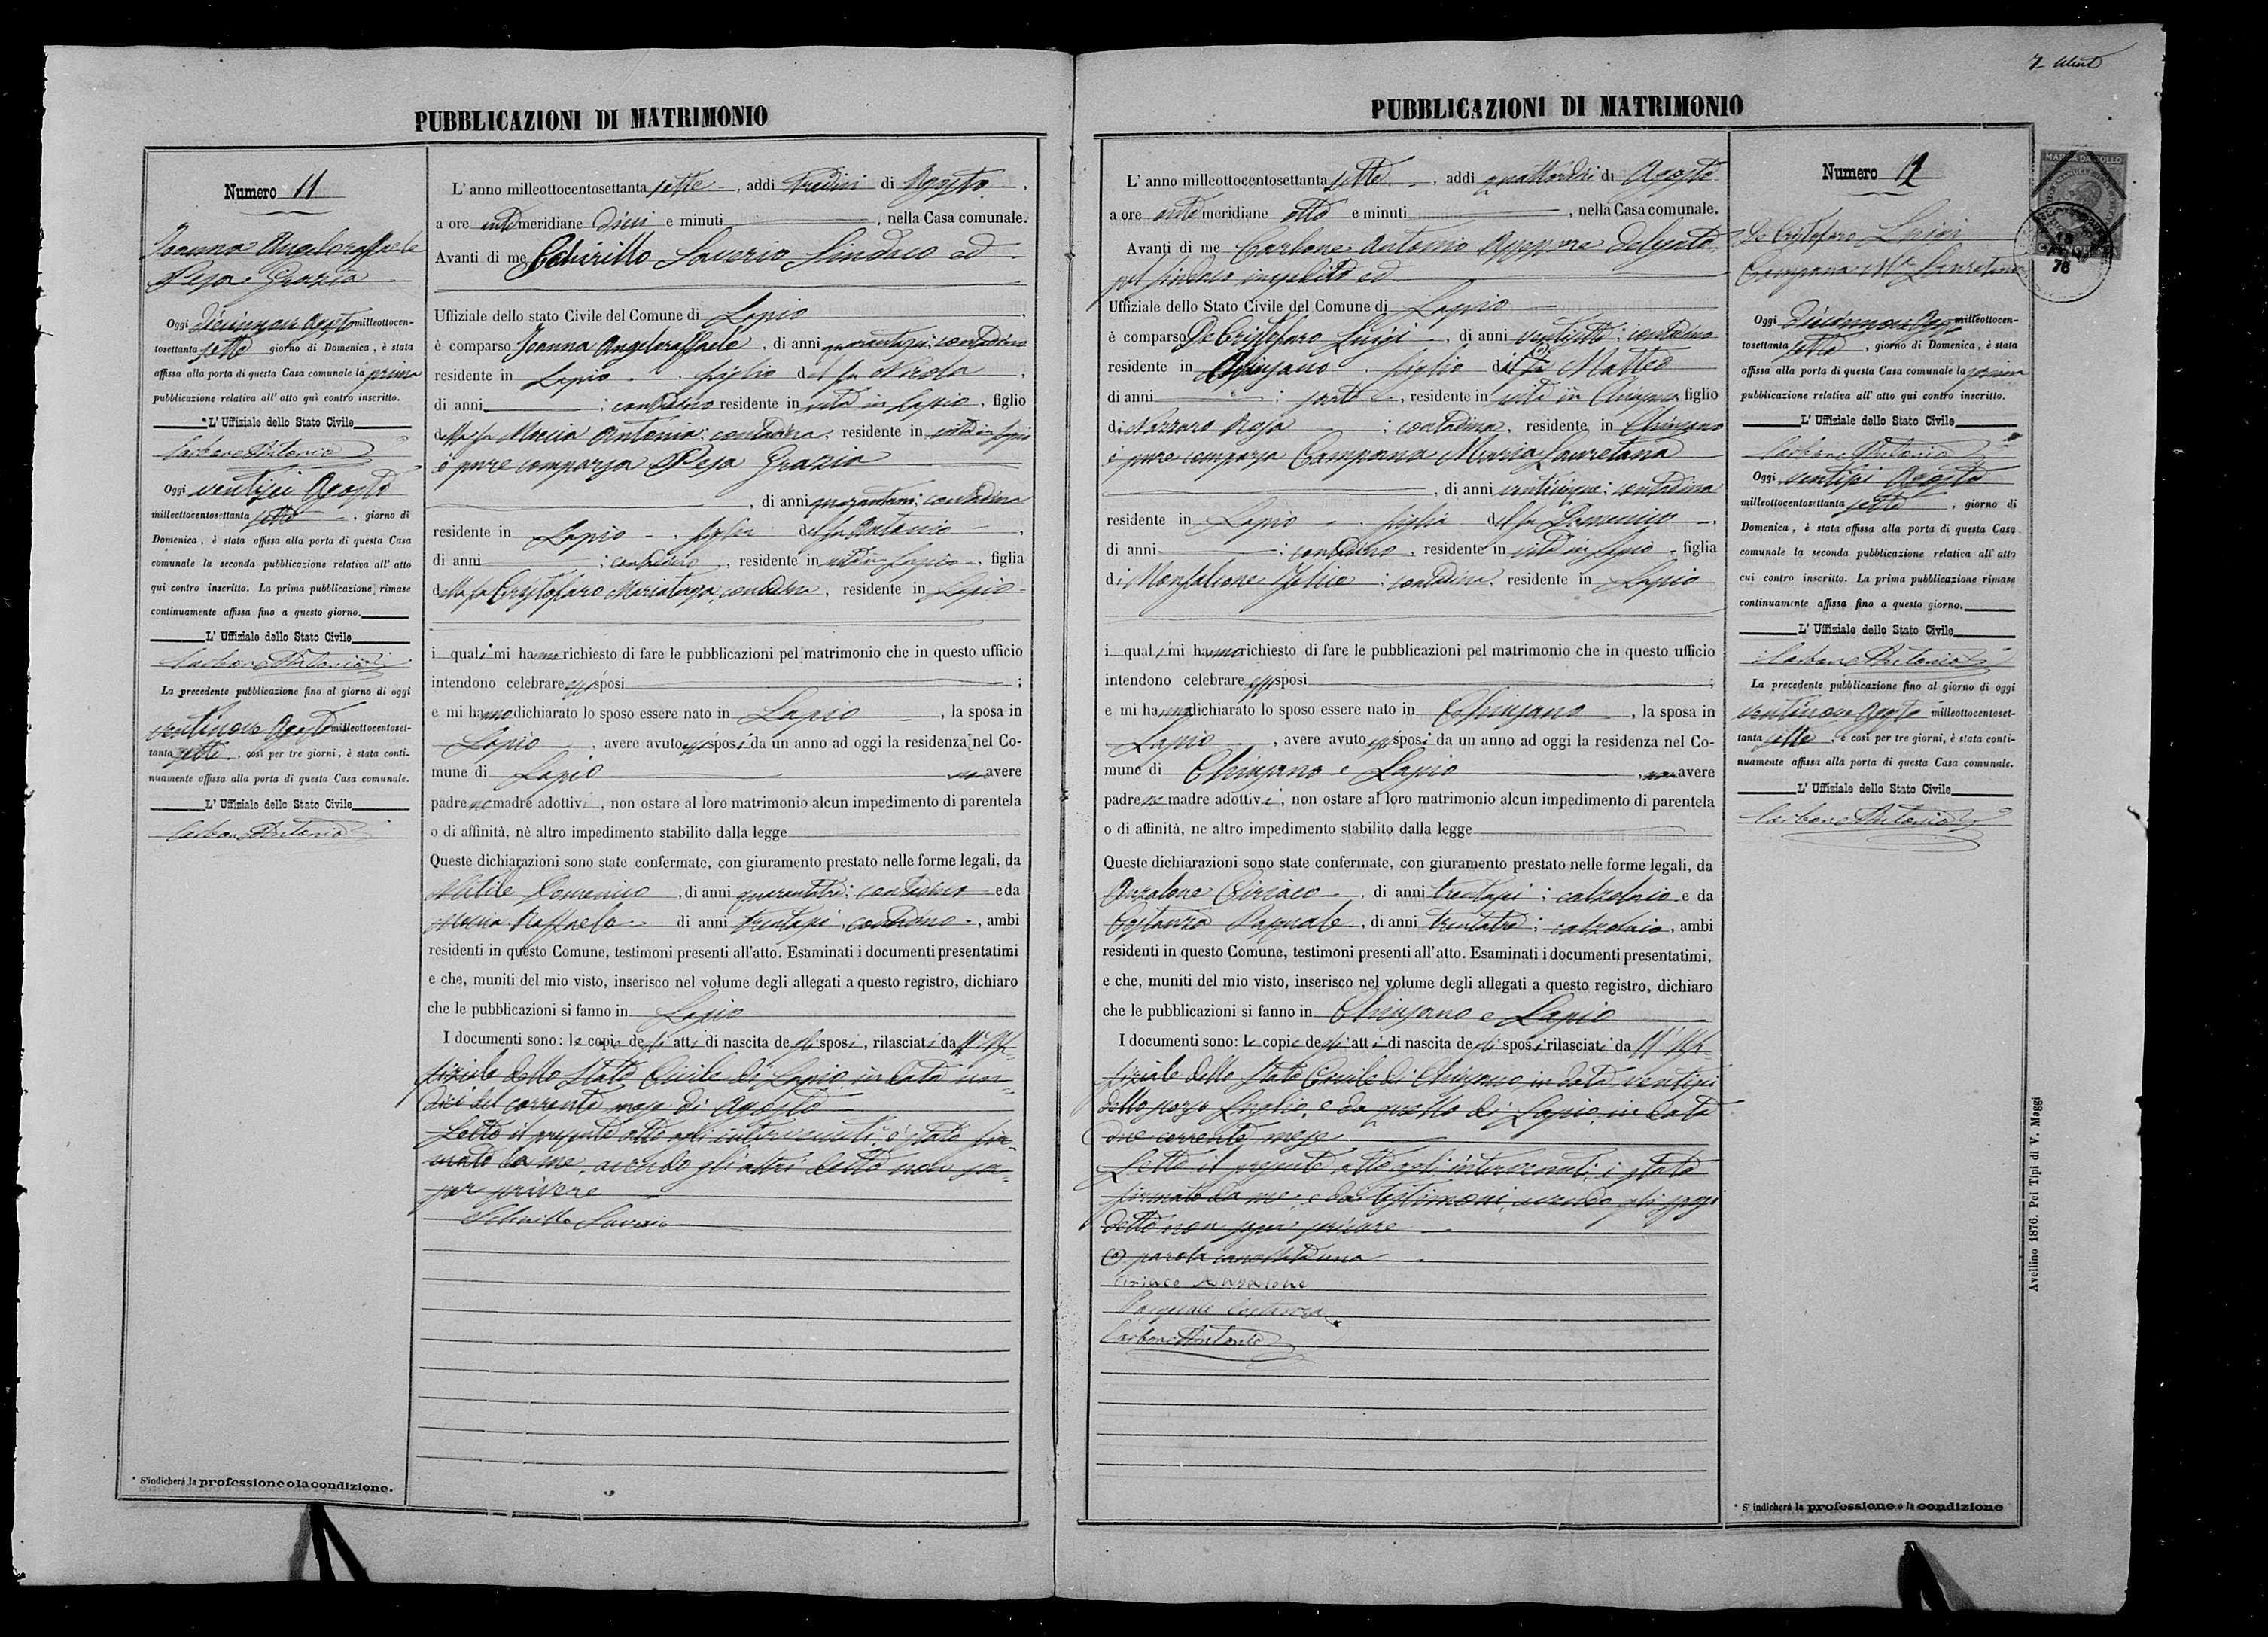 7
PUBBLICAZIONI DI MATRIMONIO
Numero 11
Ioanna Angeloraffaele
Pesa Grazia
Oggi diecinove Agosto milleottocen-
tosettanta sette giorno di Domenica, è stata
affissa alla porta di questa Casa comunale la prima
pubblicazione relativa all' atto quì contro inscritto.
L' Uffiziale dello Stato Civile
Carbone Antonio
Oggi ventisei Agosto
milleottocentosettanta sette, giorno di
Domenica, è stata affissa alla porta di questa Casa
comunale la seconda pubblicazione relativa all' atto
qui contro inscritto. La prima pubblicazione rimase
continuamente affissa fino a questo giorno.
L' Uffiziale dello Stato Civile
Carbone Antonio
La precedente pubblicazione fino al giorno di oggi
ventinove Agosto milleottocentoset-
tanta sette, così per tre giorni, è stata conti-
nuamente affissa alla porta di questa Casa comunale.
L' Uffiziale dello Stato Civile
Carbone Antonio
* S'indicherá la professione o la condizione.
L' anno milleottocentosettanta sette, addi tredici di Agosto,
a ore anti meridiane dieci e minuti, nella Casa comunale.
Avanti di me Saverio Sindaco ed
Uffiziale dello stato Civile del Comune di Lapio
è comparso Ioanna Angeloraffaele, di anni quarantasei; contadino
residente in Lapio figlio del fu Nicola,
di anni ; contadino residente in vita in Lapio, figlio
della fu Maccia Antonia; contadina; residente in vita in Lapio
è pure comparsa Pesa Grazia
, di anni ; contadina
residente in Lapio figlia del fu Antonio,
di anni ; contadino, residente in vita in Lapio, figlia
della fu Cristofaro Mariateresa, contadina, residente in Lapio
i quali mi hanno richiesto di fare le pubblicazioni pel matrimonio che in questo ufficio
intendono celebrare essi sposi ;
e mi hanno dichiarato lo sposo essere nato in Lapio, la sposa in
Lapio, avere avuto essi sposi da un anno ad oggi la residenza nel Co-
mune di Lapio non avere
padre ne madre adottivi, non ostare al loro matrimonio alcun impedimento di parentela
o di affinità, nè altro impedimento stabilito dalla legge
Queste dichiarazioni sono state confermate, con giuramento prestato nelle forme legali, da
Domenico, di anni quarantatre; contadino e da
Raffaele di anni trentasei, contadino, ambi
residenti in questo Comune, testimoni presenti all'atto. Esaminati i documenti presentatimi
e che, muniti del mio visto, inserisco nel volume degli allegati a questo registro, dichiaro
che le pubblicazioni si fanno in Lapio
I documenti sono: le copie degli atti di nascita degli sposi, rilasciati da ll' Uf-
fiziale dello Stato Civile di Lapio in data un-
dici del corrente mese di Agosto
Letto il presente atto agli intervenuti, è stato fir-
mato da me, avendo gli altri detto non sa-
per scrivere
Saverio
PUBBLICAZIONI DI MATRIMONIO
L' anno milleottocentosettanta sette, addi quattordici di Agosto
a ore anti meridiane otto e minuti, nella Casa comunale.
Avanti di me Carbone Antonio Assessore delegato
pel Sindaco impedito ed
Uffiziale dello Stato Civile del Comune di Lapio
è comparso De Cristofaro Luigi, di anni ventisette; contadino
residente in Chiusano figlio del fu Matteo
di anni ; sarto, residente in vita in Chiusano, figlio
di Nazzaro Rosa ; contadina, residente in Chiusano
è pure comparsa Campana Maria Lauretana
, di anni venticinque; contadina
residente in Lapio figlia del fu Domenico,
di anni ; contadino, residente in vita in Lapio, figlia
di Monfalcone ; contadina, residente in Lapio
i quali mi hanno richiesto di fare le pubblicazioni pel matrimonio che in questo ufficio
intendono celebrare essi sposi ;
e mi hanno dichiarato lo sposo essere nato in Chiusano, la sposa in
Lapio, avere avuto essi sposi da un anno ad oggi la residenza nel Co-
mune di Chiusano e Lapio, non avere
padre ne madre adottivi, non ostare al loro matrimonio alcun impedimento di parentela
o di affinità, ne altro impedimento stabilito dalla legge
Queste dichiarazioni sono state confermate, con giuramento prestato nelle forme legali, da
Anzalone Ciriaco, di anni trentasei; calzolaio e da
Costanza Pasquale, di anni trentatre; calzolaio, ambi
residenti in questo Comune, testimoni presenti all'atto. Esaminati i documenti presentatimi,
e che, muniti del mio visto, inserisco nel volume degli allegati a questo registro, dichiaro
che le pubblicazioni si fanno in Chiusano e Lapio
I documenti sono: le copie degli atti di nascita degli sposi rilasciati da ll' Uf-
fiziale dello Stato Civile di Chiusano in data ventisei
dello scorso Luglio, e da quello di Lapio in data
due corrente mese
Letto il presente atto agli intervenuti, è stato
firmato da me, e dai testimoni, avendo gli sposi
detto non saper scrivere
(a) parola cancellata una
Ciriaco Anzalone
Pasquale Costanza
Carbone Antonio
Numero 12
De Cristofaro Luigi
Campana Ma. Lauretana
Oggi diecinnove Agosto milleottocen-
tosettanta sette, giorno di Domenica, è stata
affissa alla porta di questa Casa comunale la prima
pubblicazione relativa all' atto qui contro inscritto.
L' Uffiziale dello Stato Civile
Carbone Antonio
Oggi ventisei Agosto
milleottocentosettanta sette, giorno di
Domenica, è stata affissa alla porta di questa Casa
comunale la seconda pubblicazione relativa all' atto
cui contro inscritto. La prima pubblicazione rimase
continuamente affissa fino a questo giorno.
L' Uffiziale dello Stato Civile
Carbone Antonio
La precedente pubblicazione fino al giorno di oggi
ventinove Agosto milleottocentoset-
tanta sette, e così per tre giorni, è stata conti-
nuamente affissa alla porta di questa Casa comunale.
L' Uffiziale dello Stato Civile
Carbone Antonio
* S' indicherá la professione o la condizione
MARCA DA BOLLO
76
Avellino 1876. Pei Tipi di V. Maggi